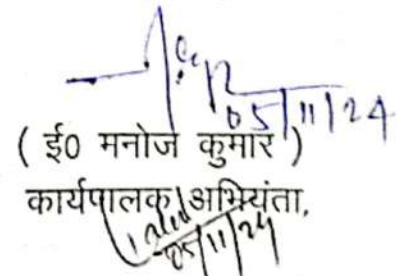 05/11/24
( ई0 मनोज कुमार )
कार्यपालक अभियंता,
05/11/24